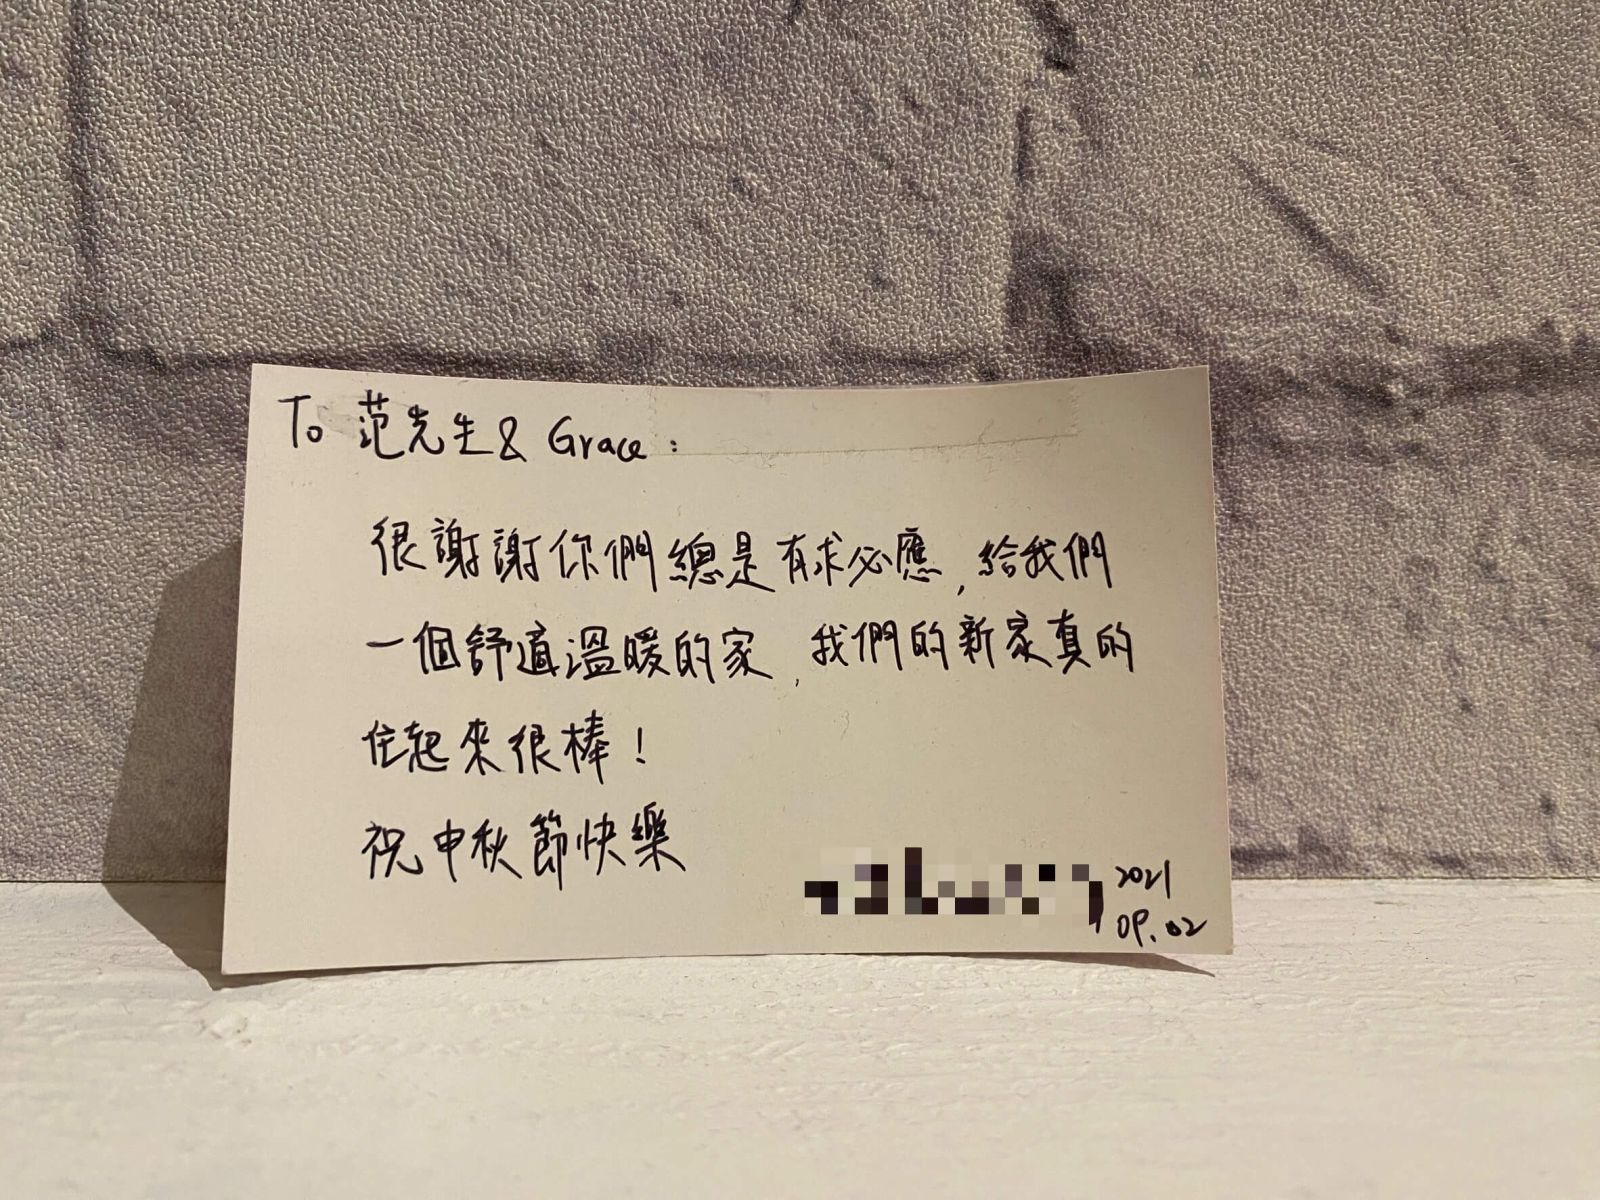 To 范先生 & Grace：
很謝謝你們總是有求必應，給我們
一個舒適溫暖的家，我們的新家真的
住起來很棒！
祝中秋節快樂
2021
09.02